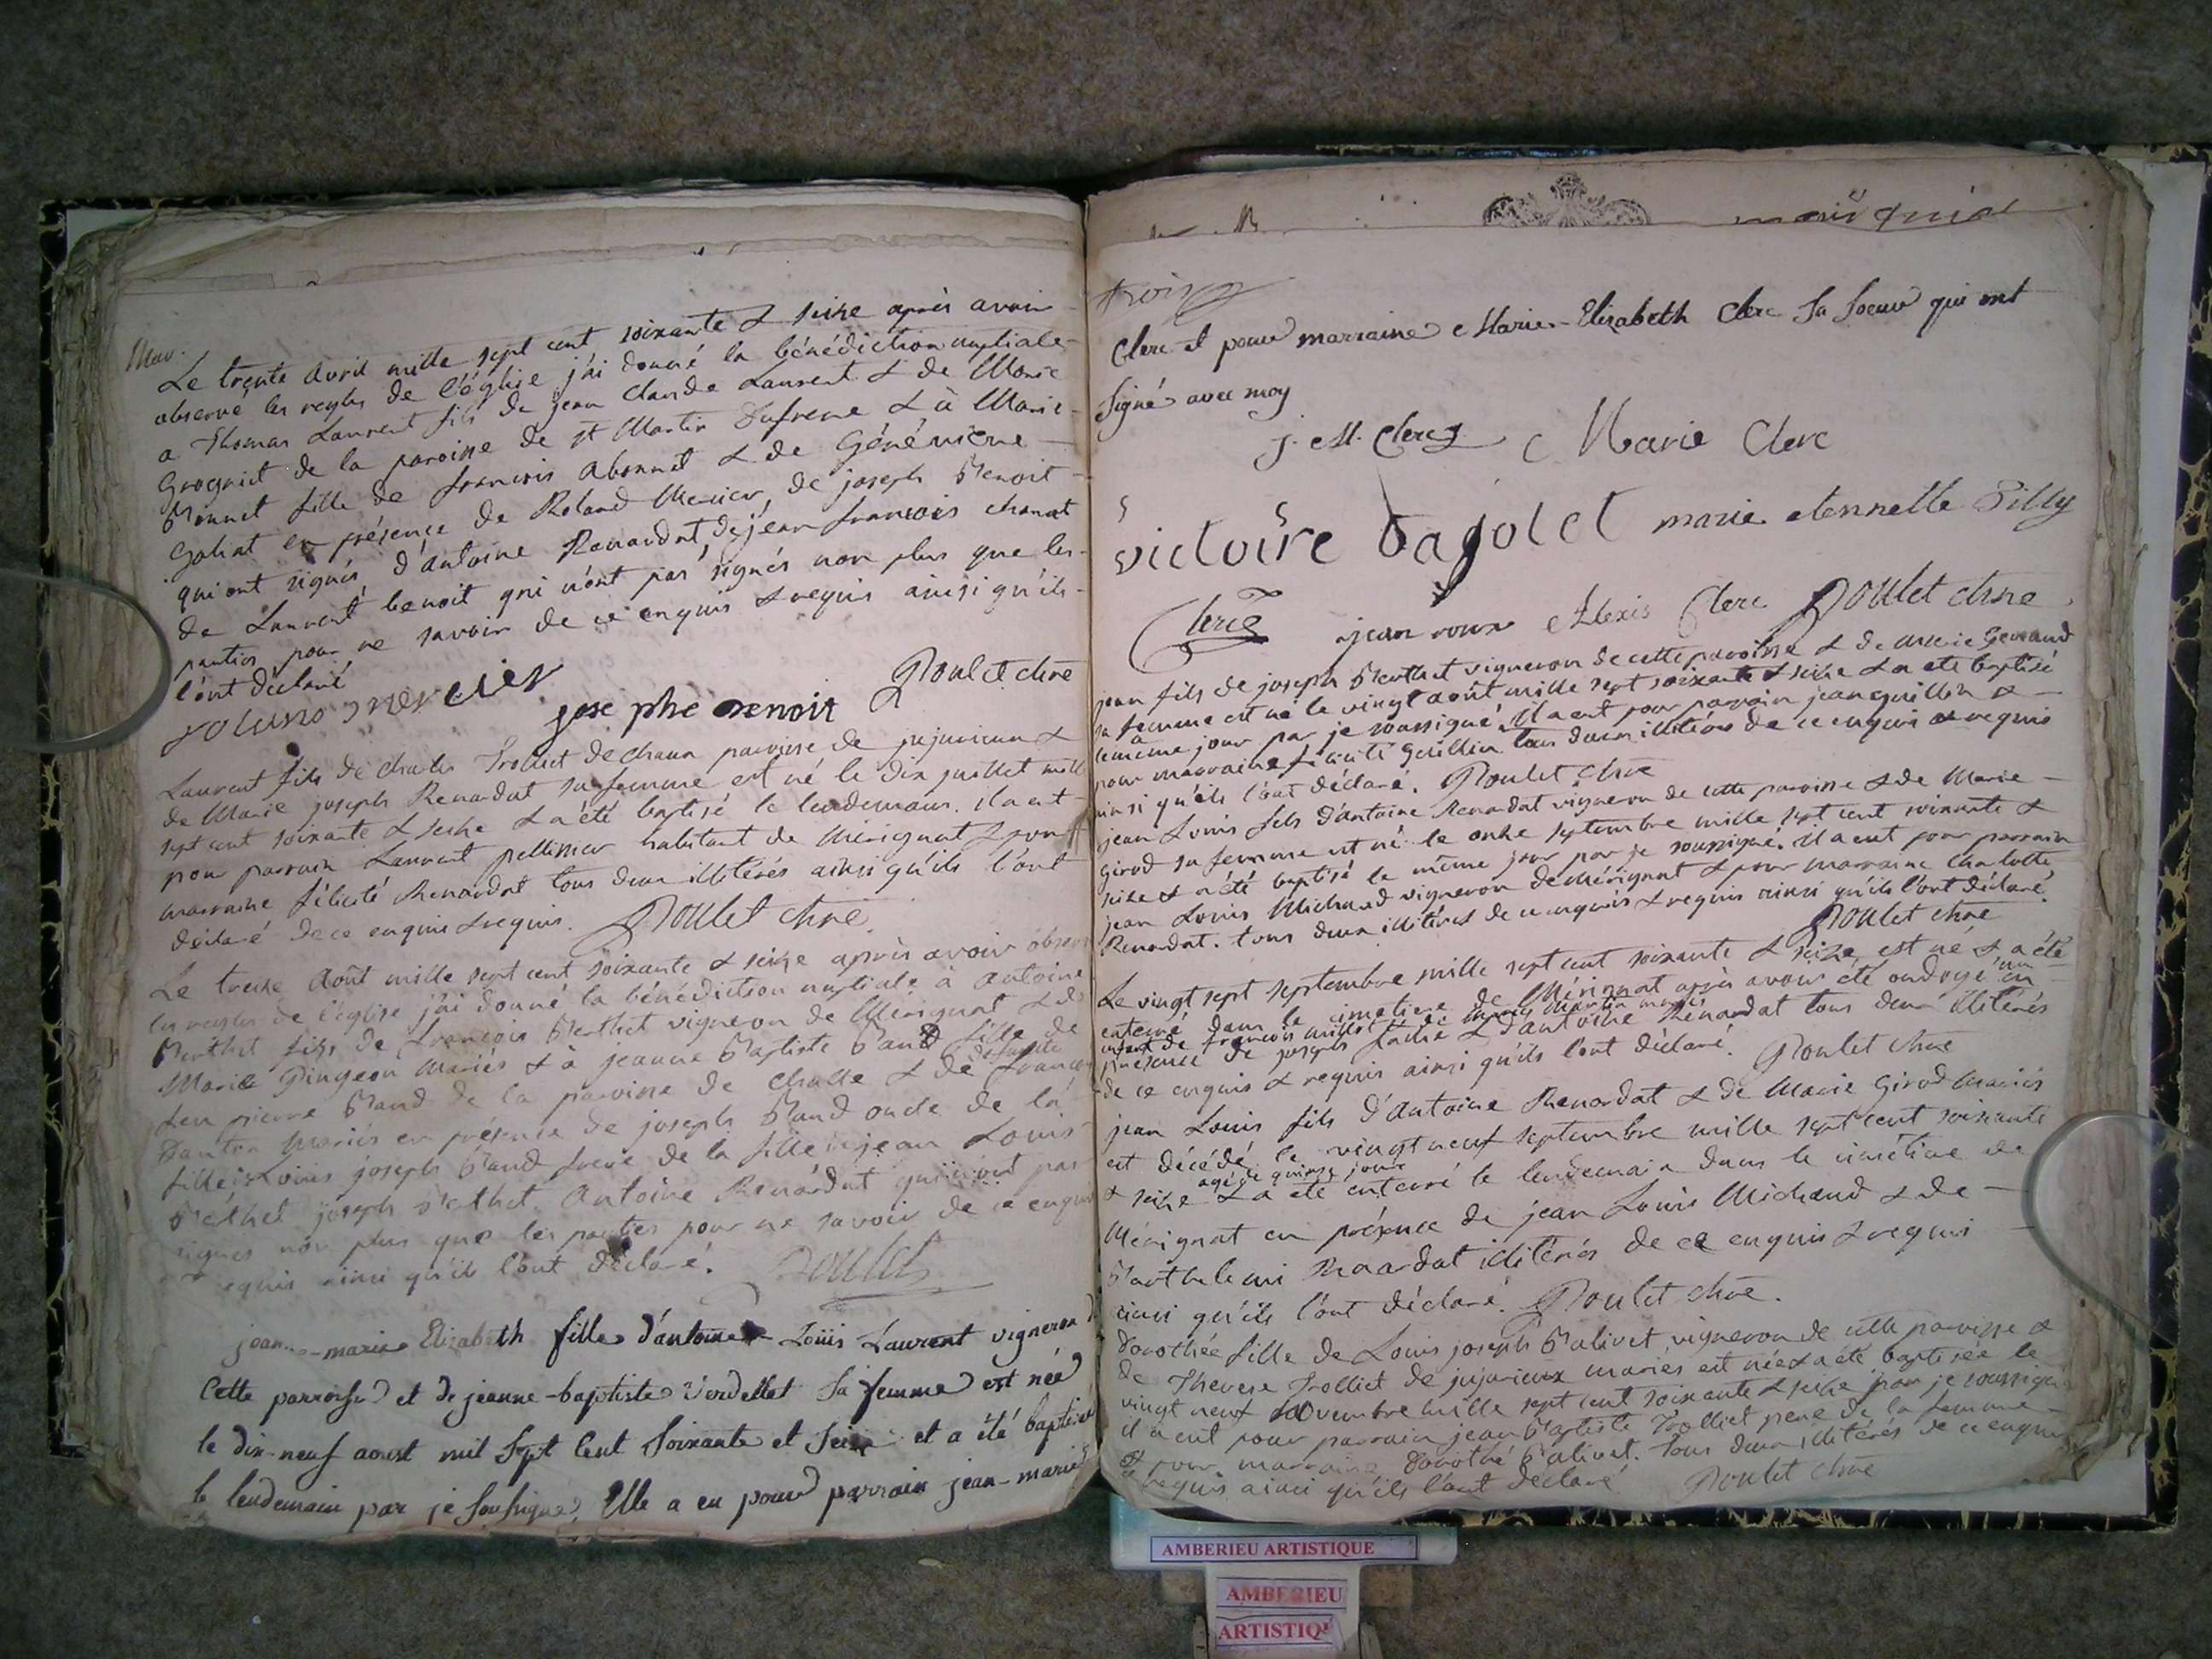 Mar.
Le trente avril mille sept cent soixante & seise après avoir
observé les regles de l'église j'ai donné la bénédiction nuptiale
a Thomas Laurent fils de jean Claude Laurent & de Marie
de la paroisse de st Martin Dufrene & à Marie
Monnet fille de francois Abonnet & de Généviève
en présence de Roland Mercier, de joseph Benoit
qui ont signés, d'antoine Renardat, de jean francois chanat
de Laurent benoit qui n'ont pas signés non plus que les
parties pour ne savoir de ce enquis & requis ainsi qu'ils
l'ont déclaré
rolans mercier
jose phe Benoit Poulet chne
Laurent fils de charles Trolliet de chaux paroisse de jujurieux &
de Marie joseph Renardat sa femme est né le dix juillet mill
sept cent soixante & seise & a été baptisé le lendemain. il a eut
pour parrain Laurent pellissier habitant de Mérignat & pour
marraine félicité Renardat tous deux illitérés ainsi qu'ils l'ont
déclaré de ce enquis & requis. Poulet chne
Le treise Août mille sept cent soixante & seise après avoir observ
les regles de l'église j'ai donné la bénédiction nuptiale à antoine
Berthet fils de francois Berthet vigneron de Mérignat & de
Marie Pingeon Mariés & à jeanne Baptiste Baud fille de
feu pierre Baud de la paroisse de Challe & de défunte
Mariés en présence de joseph Baud oncle de la
fille Louis joseph Baud frere de la fille jean Louis
Bethet joseph Bethet Antoine Renardat qui n'ont pas
signés non plus que les parties pour ne savoir de ce enquis
requis ainsi qu'il l'ont déclaré. Poulet
jeanne-marie Elizabeth fille d'antoine-Louis Laurent vigneron d
Cette parroisse et de jeanne-baptiste Verdellet Sa femme est née
le dix-neuf aoust mil Sept Cent Soixante et Seise et a été baptisé
le lendemain par je Soussigné, Elle a eu pour parrain jean-marie
trois
Clerc et pour marraine Marie-Elizabeth Clerc Sa Soeur qui ont
Signé avec moy
j. M. Clerc Marie Clerc
victoire Bajolet marie etennette Silly
Clerc jean roux Alexis Clerc Poulet chne
jean fils de joseph Berthet vigneron de cette paroisse & de Marie
sa femme est né le vingt août mille sept soixante & seise & a été baptisé
le même jour par je soussigné. Il a eut pour parrain jean guillin &
pour marraine félicité Guillin tous deux illitérés de ce enquis & requis
ainsi qu'ils l'ont déclaré. Poulet chne
jean Louis fils d'antoine Renardat vigneron de cette paroisse & de Marie
Girod sa femme est né le onse septembre mille sept cent soixante &
seise & a été baptisé le même jour par je soussigné. il a eut pour parrain
jean Louis Michaud vigneron de Mérignat & pour marraine charlotte
Renardat. tous deux illitérés de ce enquis & requis ainsi qu'ils l'ont déclaré.
Poulet chne
Le vingt sept septembre mille sept cent soixante & seise est né & a été
enterré dans le cimetiere de Mérignat après avoir été ondoyé un
enfant de francois millet & de Martin mariés en
présence de joseph & d'antoine Renardat tous deux illitérés
de ce enquis & requis ainsi qu'ils l'ont déclaré. Poulet chne
jean Louis fils d'Antoine Renardat & de Marie Girod Mariés
est décédé le vingt neuf septembre mille sept cent soixante
agé de quinse jours
& seise & a été enterré le lendemain dans le cimétiere de
Mérignat en présence de jean Louis Michaud & de
Barthelemi Renardat illitérés de ce enquis & requis
ainsi qu'ils l'ont déclaré. Poulet chne.
Dorothée fille de Louis joseph Balivet, vigneron de cette paroisse &
de Therese Trolliet de jujurieux mariés est née & a été baptisée le
vingt neuf Novembre mille sept cent soixante & seise par je soussigné
il a eut pour parrain jean Baptiste Trolliet pere de la femme
& pour marraine Dorothé Balivet. tous deux illitérés de ce enquis
& requis ainsi qu'ils l'ont déclaré Poulet chne
AMBERIEU ARTISTIQUE
AMBERIEU
ARTISTIQ